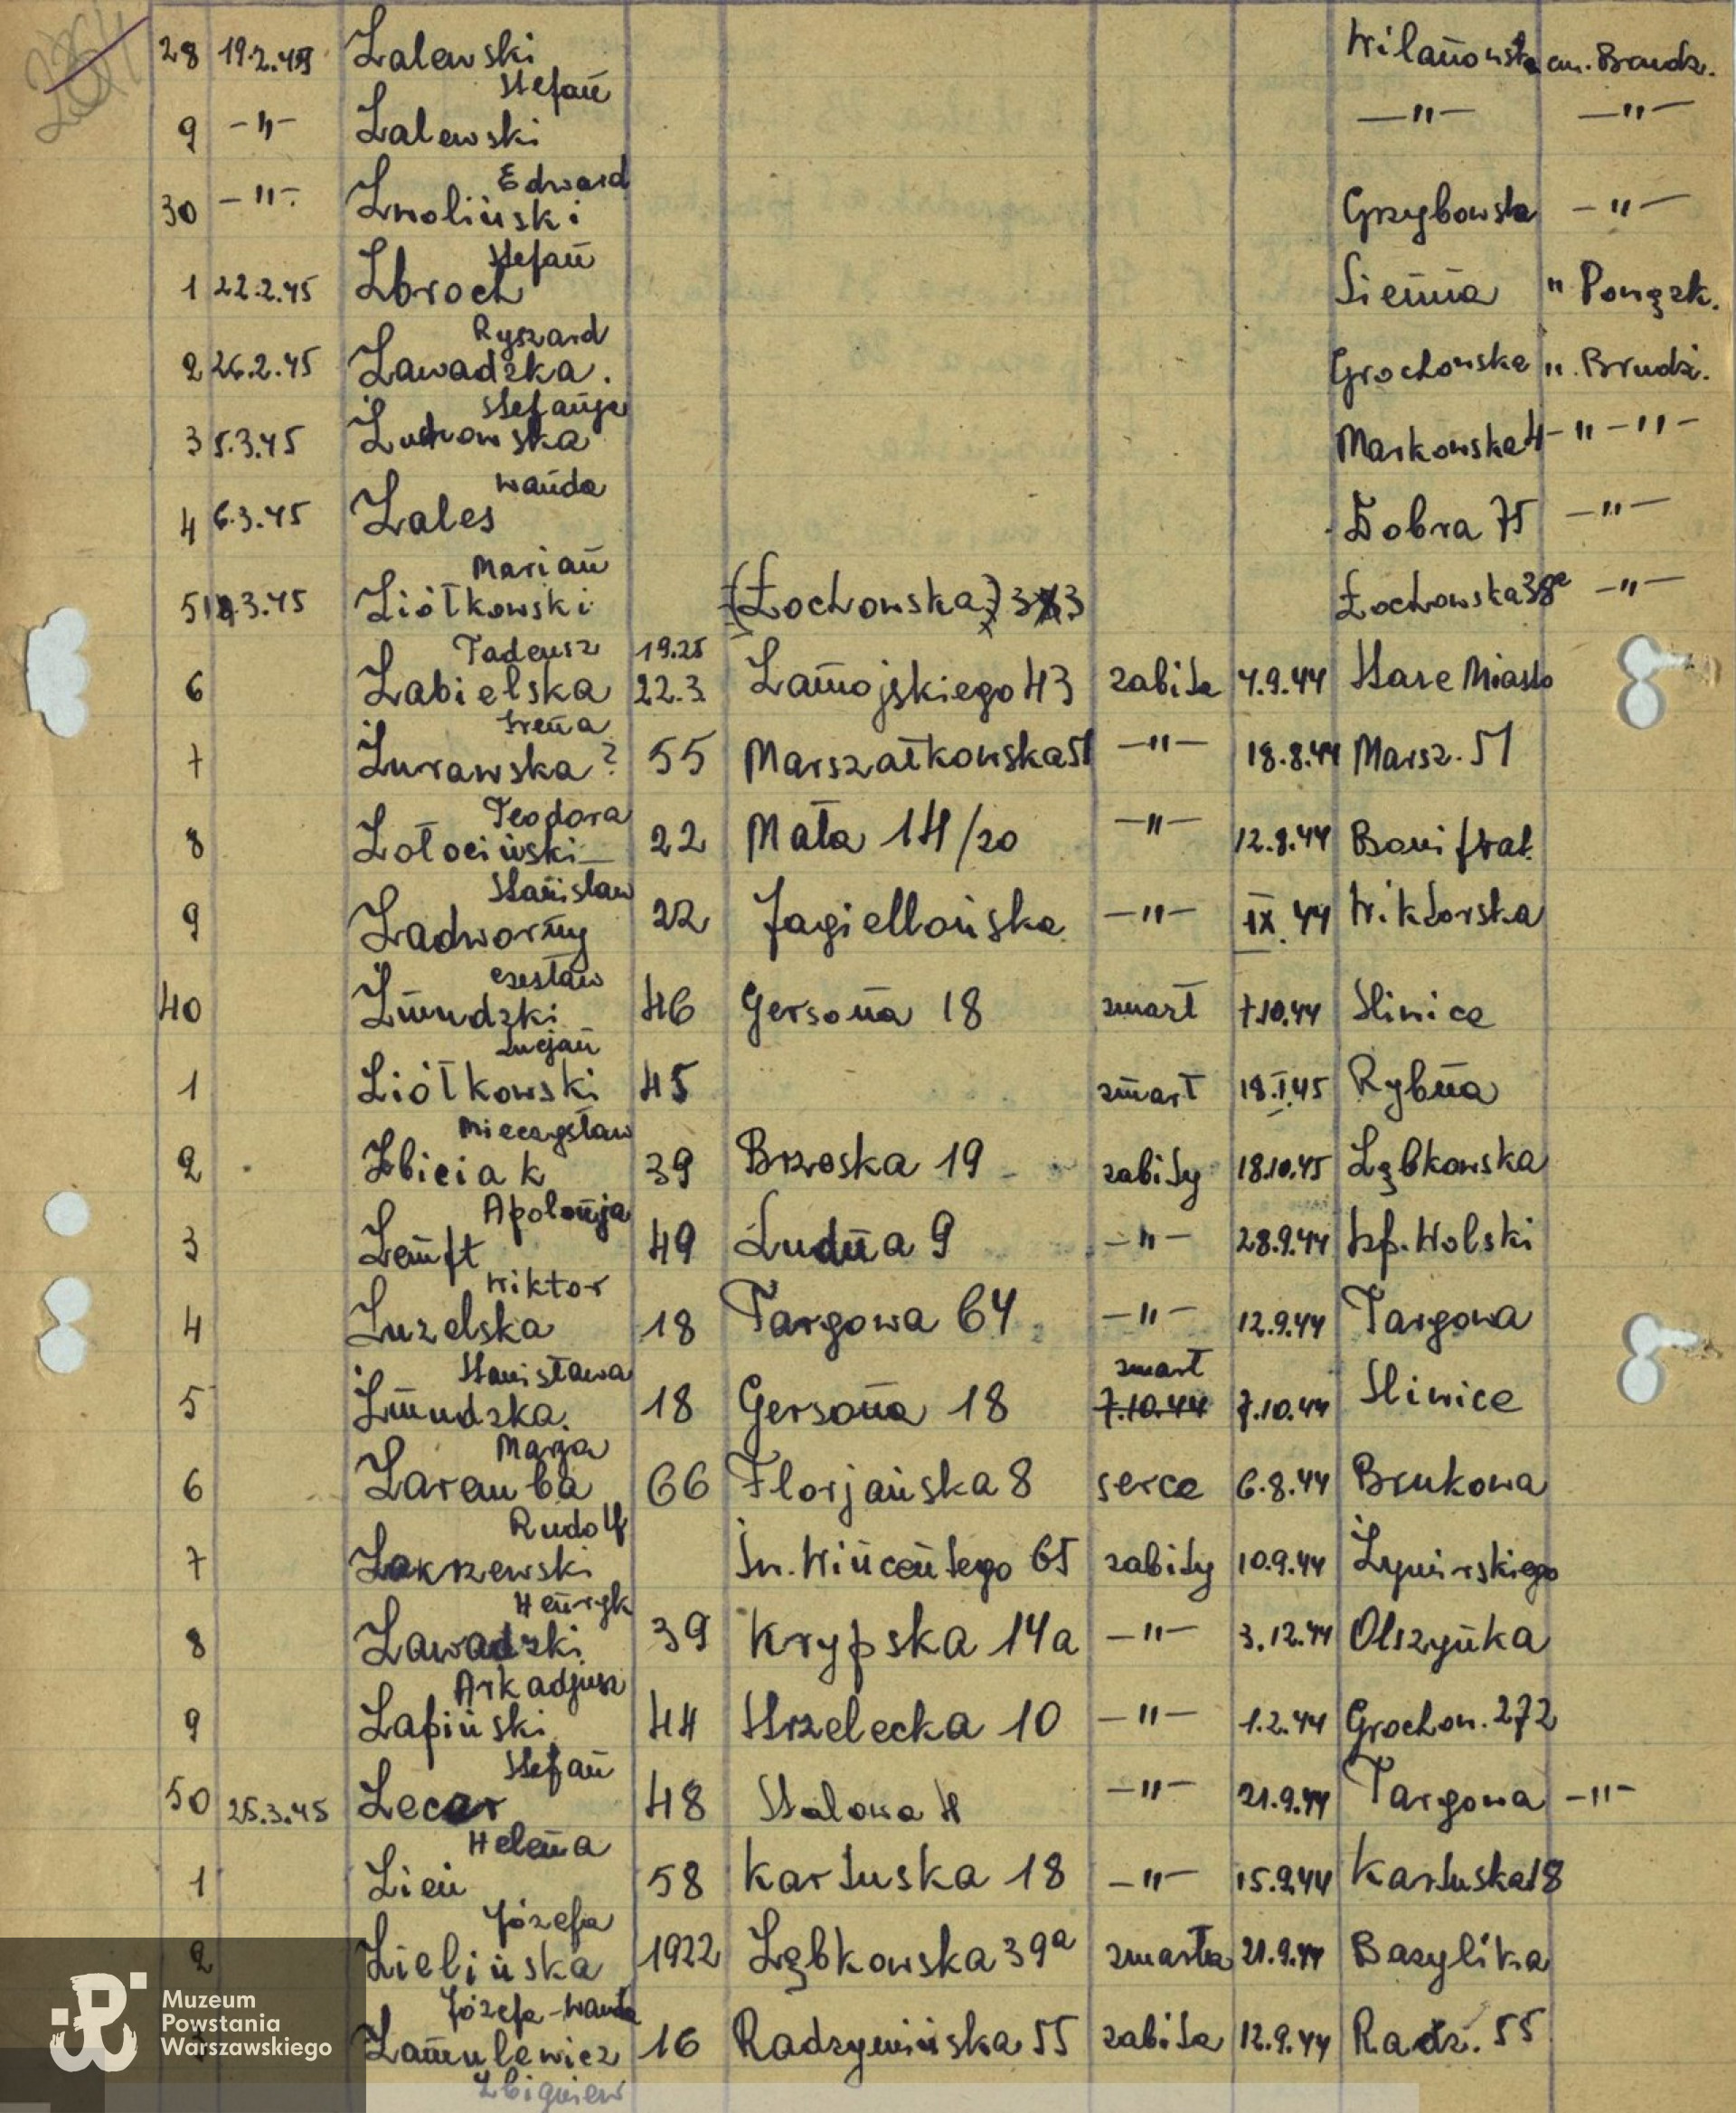 28 19.2.45 Zalewski Wilanowska cm. Brudz.
Stefan
9 -"- Zalewski -"- -"-
Edward
30 -"- Zwoliński Grzybowska -"-
Stefan
1 22.2.45 Zbroch Sienna " Powązk.
Ryszard
2 26.2.45 Zawadzka. Grochowska ". Brudz.
Stefanja
3 5.3.45 Żuchowska Markowska 4 -"-"-
Wanda
4 6.3.45 Zales Dobra 75 -"-
Marian
5 3.45 Ziółkowski (Łochowska) Łochowska 38a -"-
Tadeusz 19.25
6 Zabielska 22.3 Zamojskiego 43 zabita 7.9.44 Stare Miasto
Irena
7 Żurawska? 55 Marszałkowska 51 -"- 18.8.44 Marsz. 51
Teodora
8 Złociński 22 Mała 14/20 -"- 12.8.44 Bonifrat.
Stanisław
9 Zadworny 22 Jagiellońska -"- IX.44 Wiktorska
Czesław
40 Żmudzki 46 Gersona 18 zmarł 7.10.44 Śliwice
Lucjan
1 Ziółkowski 45 zmarł 18.I.45 Rybna
Mieczysław
2 Zbiciak 39 Brzeska 19 zabity 18.10.45 Ząbkowska
Apolonja
3 Zemft 49 Ludna 9 -"- 28.9.44 Szp. Wolski
Wiktor
4 Zuzelska 18 Targowa 64 -"- 12.9.44 Targowa
Stanisława zmarł
5 Żmudzka. 18 Gersona 18 7.10.44 7.10.44 Śliwice
Marja
6 Zaremba 66 Florjańska 8 serce 6.8.44 Brukowa
Rudolf
7 Zakrzewski Św. Wincentego 65 zabity 10.9.44 Żymirskiego
Henryk
8 Zawadzki 39 Krypska 14a -"- 3.12.44 Olszynka
Arkadjusz
9 Zapiński 44 Strzelecka 10 -"- 1.2.44 Grochow. 272
Stefan
50 25.3.45 Zecer 48 Stalowa 4 -"- 21.9.44 Targowa -"-
Helena
1 Zień 58 Kartuska 18 -"- 15.9.44 Kartuska 18
Józefa
2 Zielińska 1922 Ząbkowska 39a zmarła 21.9.44 Bazylika
Józefa-Wanda
Zamulewicz 16 Radzymińska 55 zabita 12.9.44 Radz. 55
Zbigniew
Muzeum
Powstania
Warszawskiego